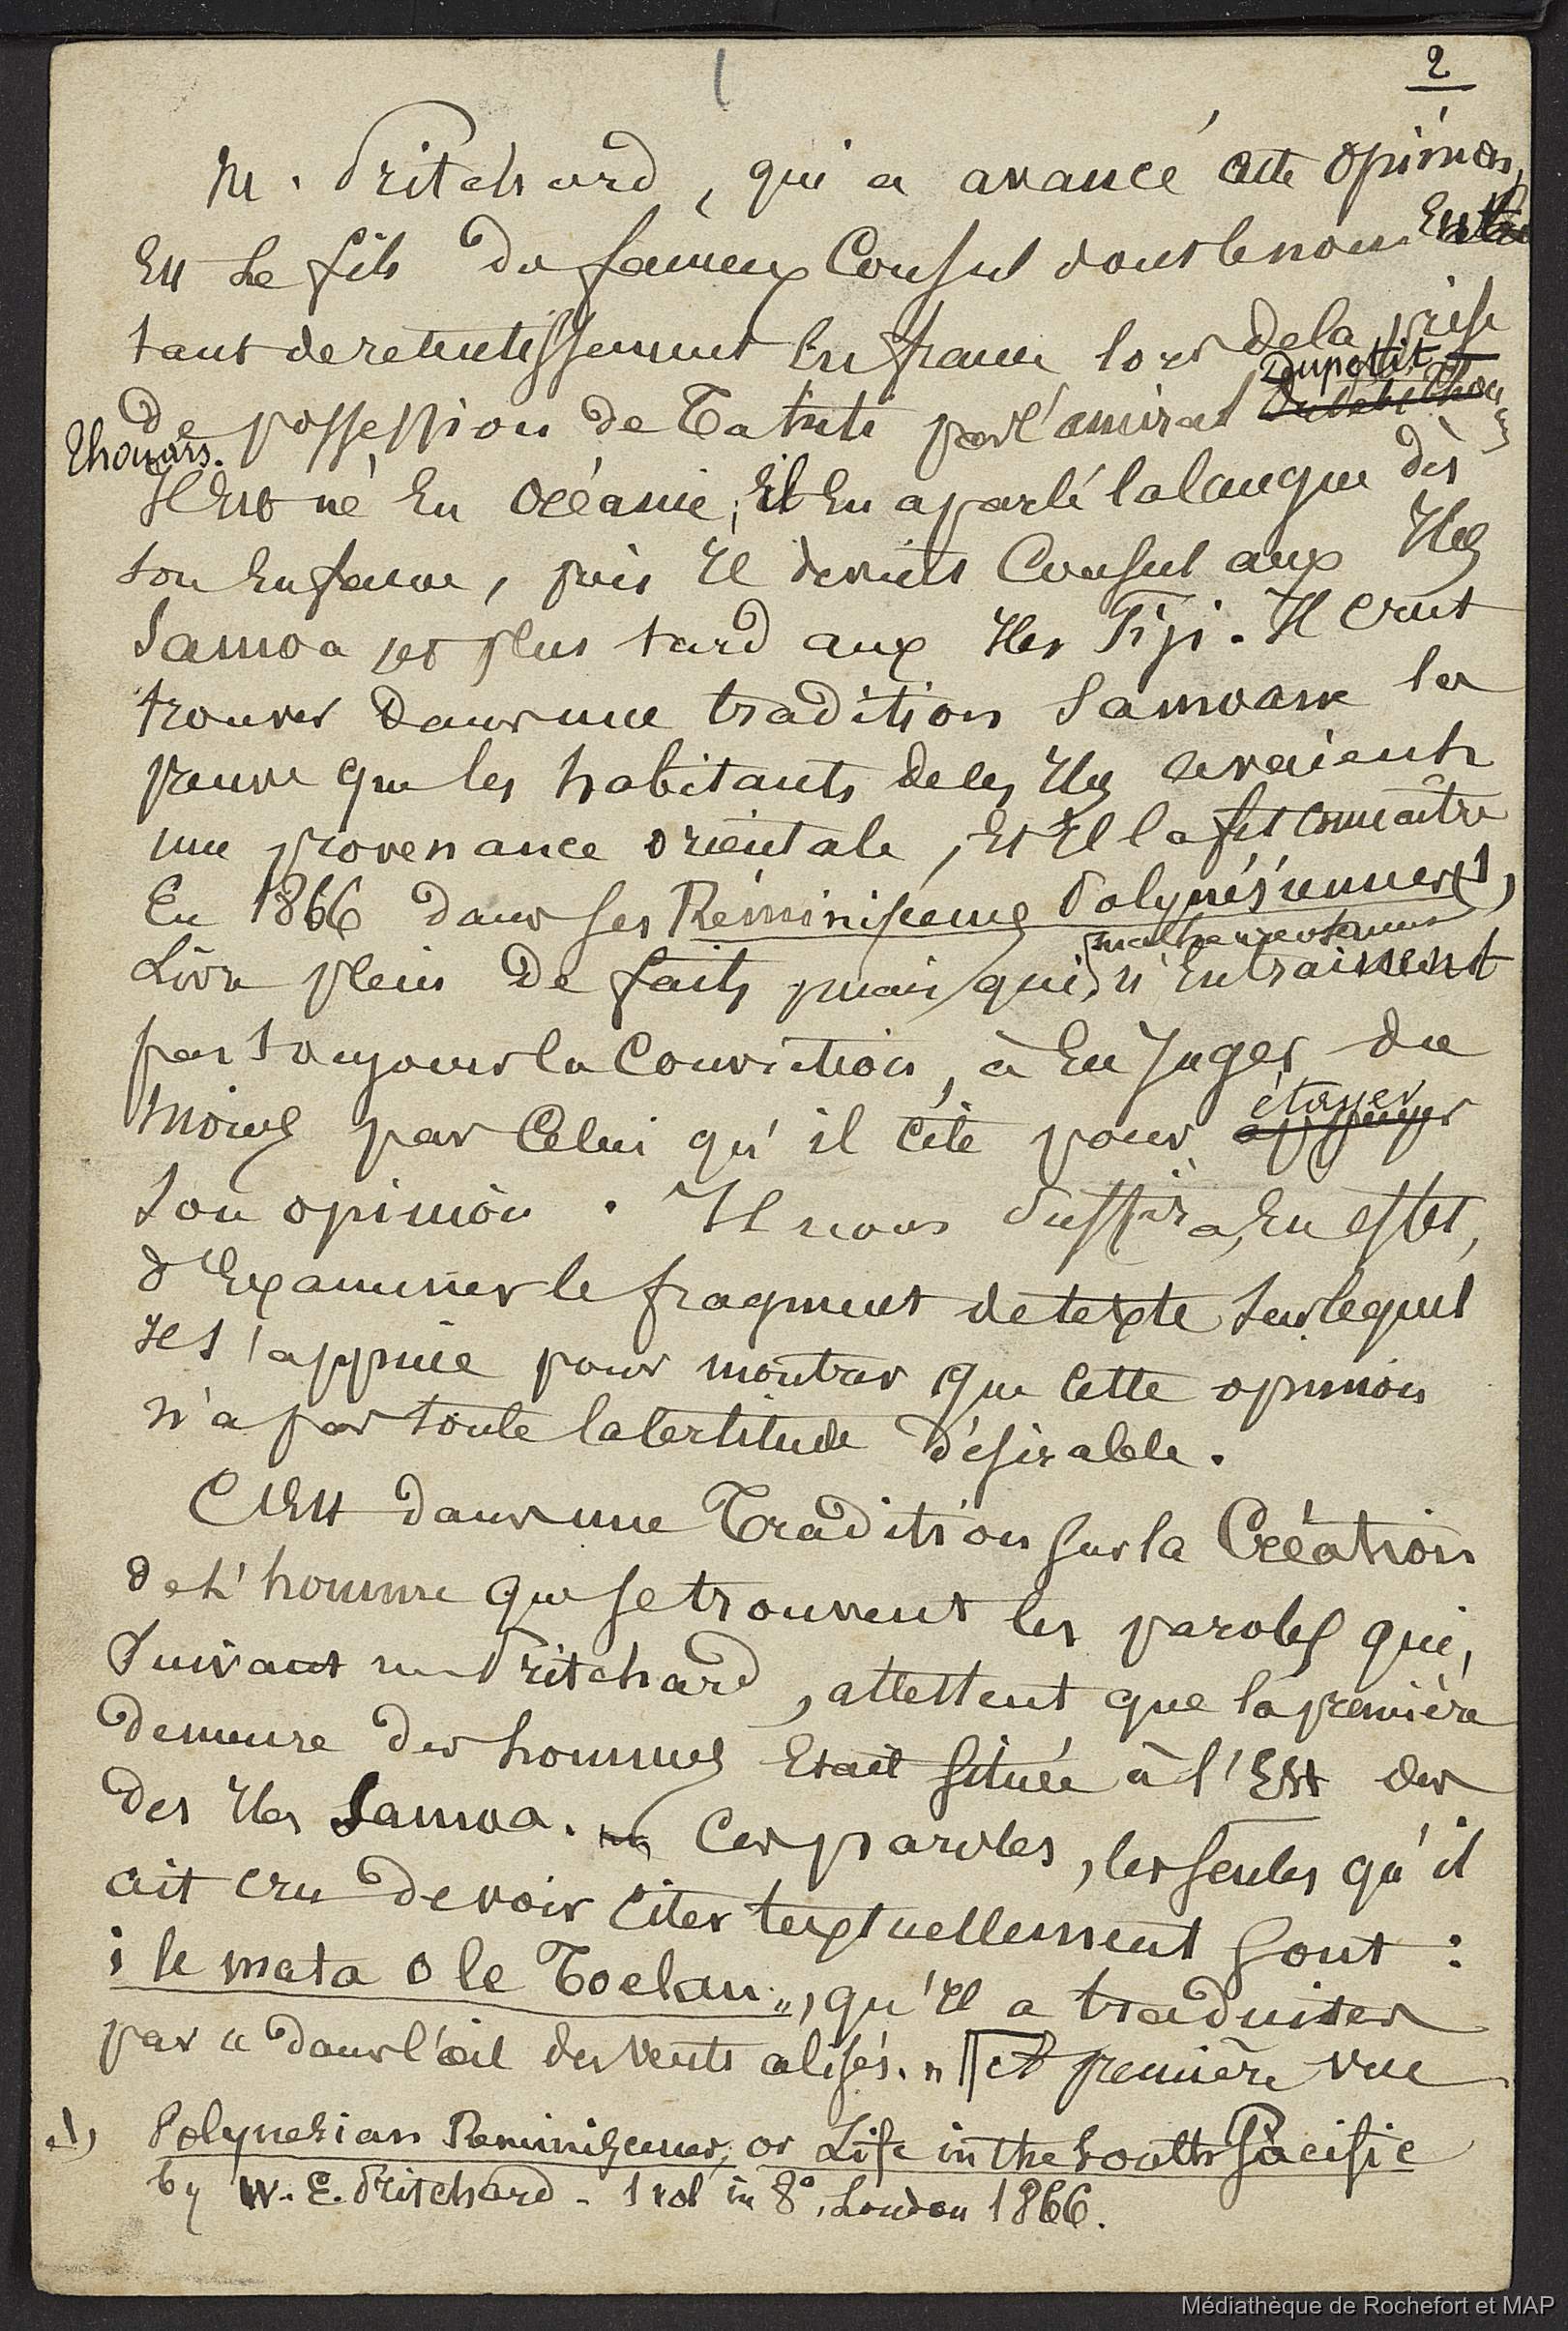 2
M. Pritchard, qui a avancé cette opinion,
Est le fils du fameux Consul dont le nom Eut
tant de retentissement En france lors de la prise
de possession de Tahiti par l'amiral Dupettit
Thouars.
Il Est né En Océanie, Il En a parlé la langue dès
son Enfance, puis Il devint Consul aux Iles
Samoa et plus tard aux Iles Fiji. Il crut
trouver dans une tradition Samoane la
preuve que les habitants de ces Iles avaient
une provenance orientale, Et Il la fit connaître
En 1866 dans ses Réminiscences Polynésiennes (1),
Livre plein de faits, mais qui, malheureusement
n'Entrainent
pas toujours la Conviction, à En Juger du
moins par Celui qu'il cite pour étayer
appuyer
son opinion. Il nous Suffira, En effet,
d'Examiner le fragment de texte sur lequel
Il s'appuie pour montrer que Cette opinion
n'a pas toute la Certitude désirable.
C'Est dans une Tradition sur la Création
de L'homme que se trouvent les paroles qui,
Suivant m. Pritchard, attestent que la première
demeure des hommes Etait située à l'Est des
des Iles Samoa. Ces paroles, les seules qu'il
ait cru devoir citer textuellement sont :
i le mata o le Toelau", qu'Il a traduites
par " dans l'œil des vents alisés. " A première vue
(1) Polynesian Reminiscences, or Life in the South Pacific
by W. E. Pritchard - 1 vol in 8°, London 1866.
Médiathèque de Rochefort et MAP